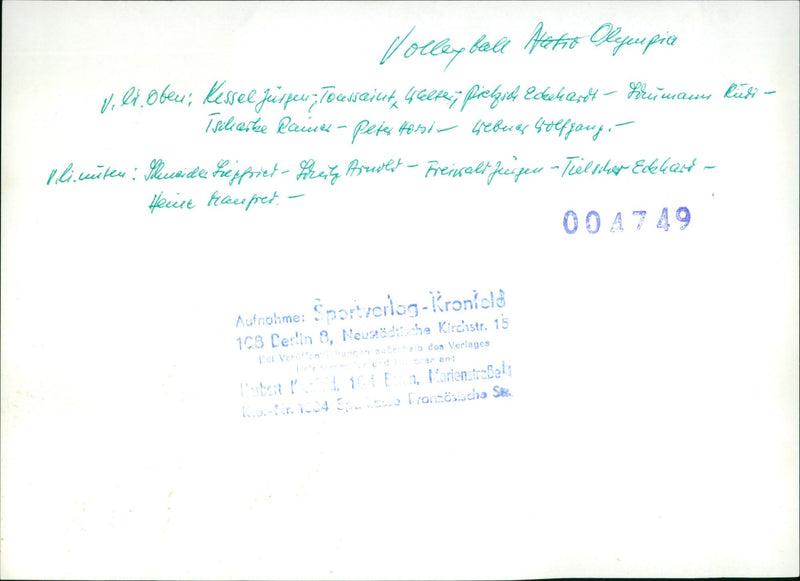 Volleyball Natio Olympia
v. li. oben: Kessel Jürgen, Toussaint, Walter, Pietzsch Eckehardt – Schumann Rudi –
Tscharke Rainer – Peter Horst – Webner Wolfgang. –
v. li. unten: Schneider Siegfried – Schulz Arnold – Freiwald Jürgen – Tielscher Eckhard –
Heine Manfred. –
004749
Aufnahme: Sportverlag-Kronfeld
108 Berlin 8, Neustädtische Kirchstr. 15
Bei Veröffentlichungen außerhalb des Verlages
und Honorar an:
Herbert 104 Berlin, Marienstraße
Kto.-Nr. 1004 Sparkasse Französische Str.